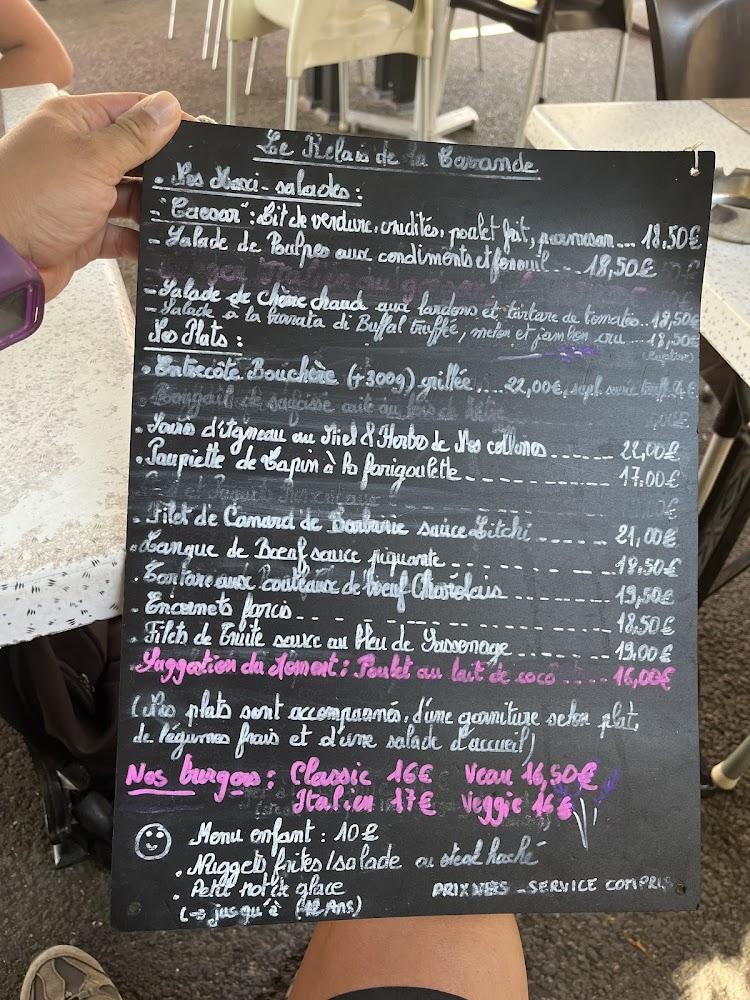 Le Relais de la Lavande
• Nos Maxi-salades :
- "Caesar" : Lit de verdure, crudités, poulet frit, parmesan ... 18,50€
- Salade de Poulpes aux condiments et fenouil .... 18,50€
- Salade de chèvre chaud aux lardons et tartare de tomates. 18,50€
- Salade à la burrata di Buffal truffée, melon et jambon cru ... 18,50€
Les Plats :
• Entrecôte Bouchère (+300g) grillée .... 22,00€, supl. sauce truffe 4€
• Souris d'Agneau au Miel & Herbes de Nos collines ...... 22,00€
• Paupiette de Lapin à la farigoulette ........ 17.00€
• Filet de Canard de Barbarie sauce Litchi ..... 21,00€
• Langue de Bœuf sauce piquante ........ 18.50€
• Tartare aux Couteaux de bœuf Charolais ........ 19,50€
• Encornets farcis ........ 18.50€
• Filets de Truite sauce au Bleu de Sassenage ........ 19.00€
Suggestion du Moment : Poulet au lait de coco ...... 16,00€
(Nos plats sont accompagnés, d'une garniture selon plat,
de légumes frais et d'une salade d'accueil)
Nos burgers : Classic 16€ Veau 16,50€
Italien 17€ Veggie 16€
Menu enfant : 10€
• Nuggets, frites/salade ou steak haché
• Petit pot de glace
(→ jusqu'à 12 Ans)
PRIX NETS - SERVICE COMPRIS